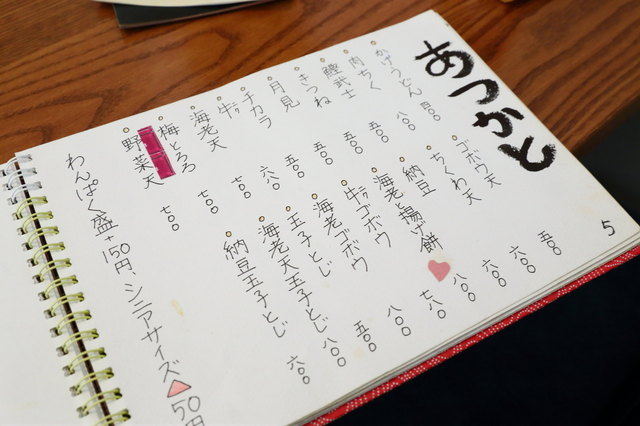 あつかと
かけうどん 四〇〇
肉ちく 八〇〇
鰹武士 五〇〇
きつね 五〇〇
月見 五〇〇
チカラ 五〇〇
牛 六〇〇
海老天 七〇〇
梅とろろ 七〇〇
野菜天 七〇〇
ゴボウ天 五〇〇
ちくわ天 六〇〇
納豆 六〇〇
海老と揚げ餅 八〇〇
牛ゴボウ 七八〇
海老ゴボウ 八〇〇
玉子とじ 五〇〇
海老天玉子とじ 八〇〇
納豆玉子とじ 六〇〇
わんぱく盛+150円、シニアサイズ▲50円
5